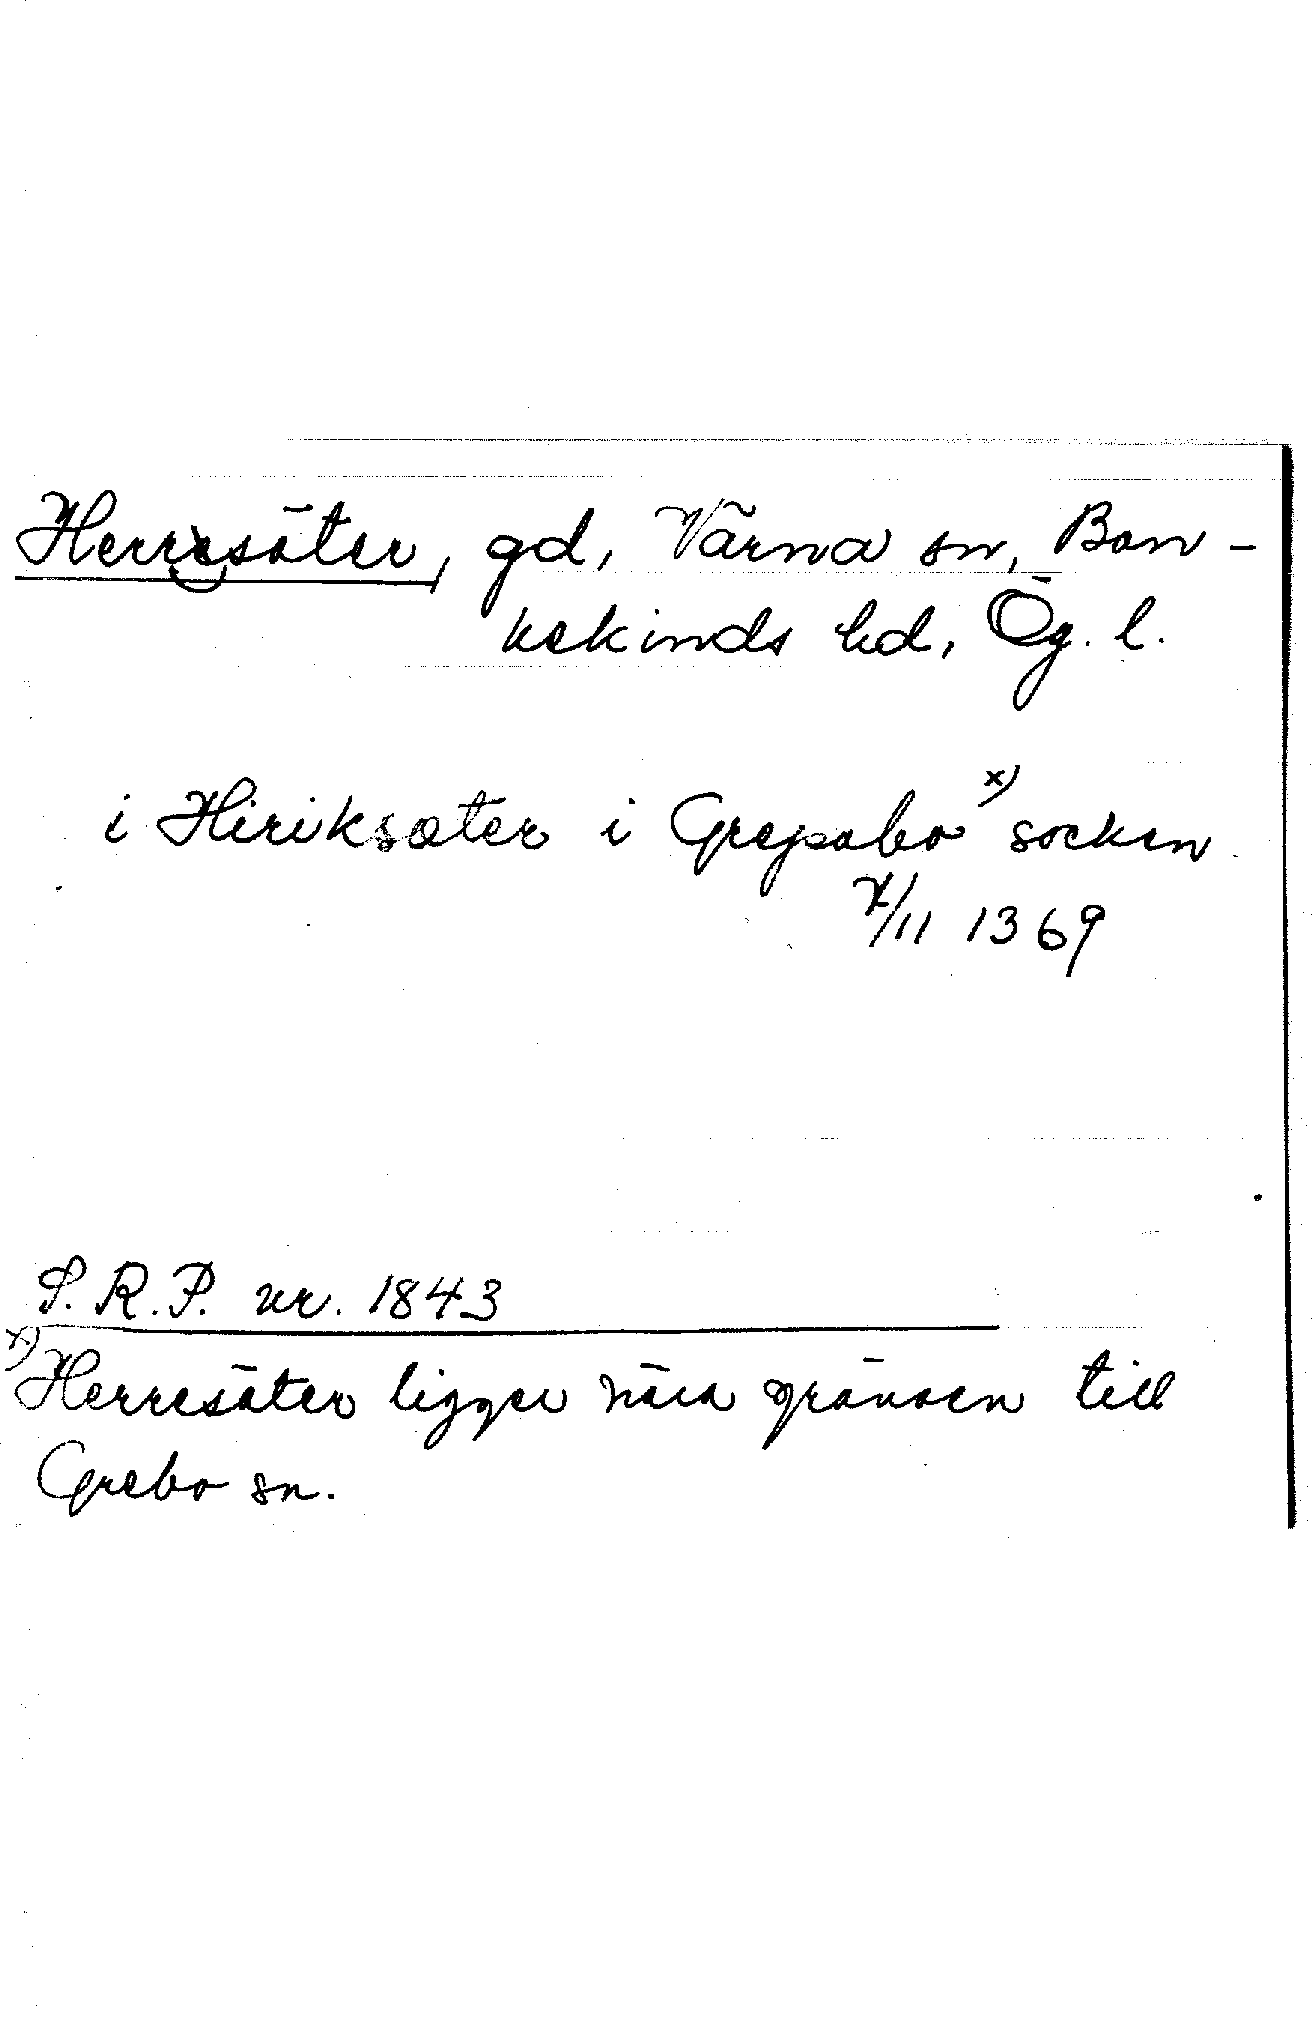 Herresäter, gd, Värna sn, Ban-
kekinds hd, Ög. l.
i Hiriksæter i Grepabo x) socken
7/11 1369
S.R.P. nr. 1843
x) Herresäter ligger nära gränsen till
Grebo sn.